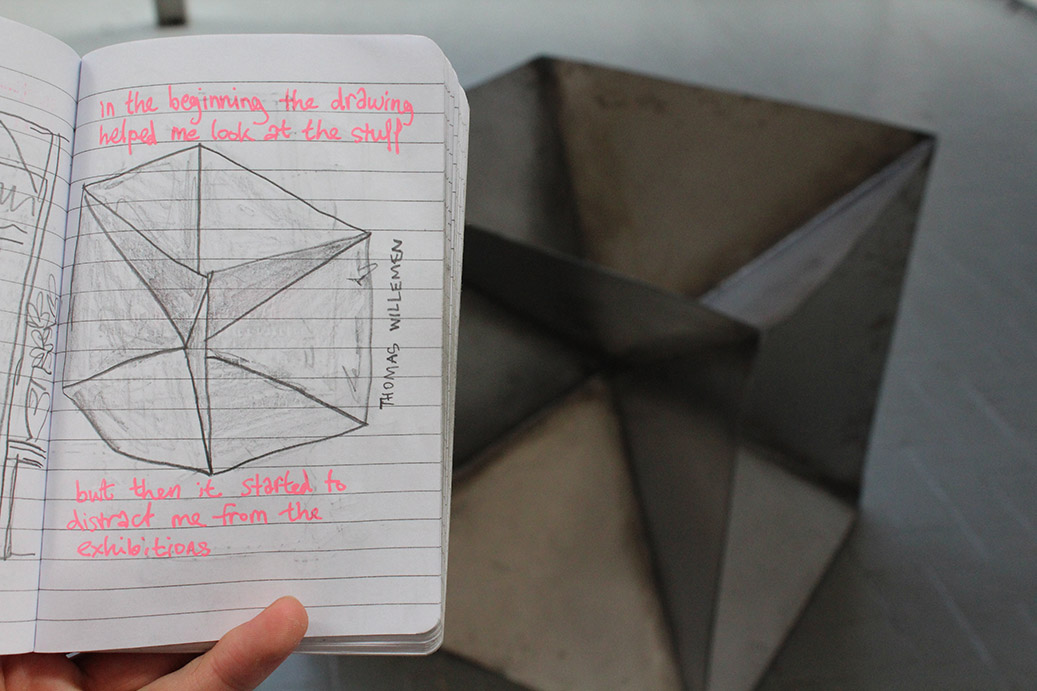 in the beginning the drawing
helped me look at the stuff
THOMAS WILLEMEN
but then it started to
distract me from the
exhibitions